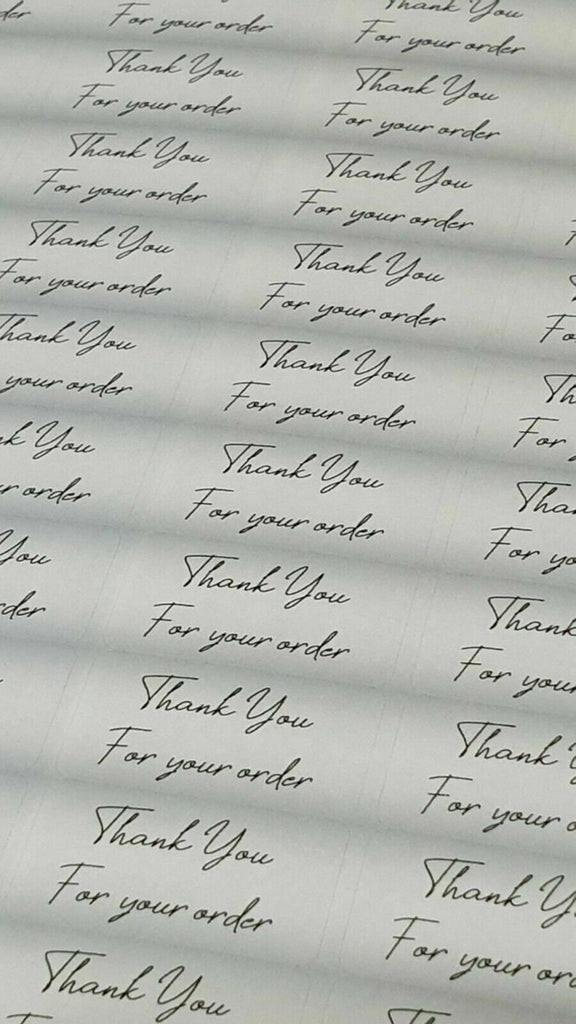 der
For your order
Thank You
For your order
Thank You
For your order
Thank You
For your order
Thank You
For your order
Thank You
For your order
Thank You
For your order
Thank You
For your order
Thank You
your order
Thank You
For your order
You
order
Thank You
For your order
You
der
Thank You
For your order
Thank You
For your order
Thank You
For your order
Thank You
For your order
Thank
For your
Thank
For your
Thank You
For your
Thank You